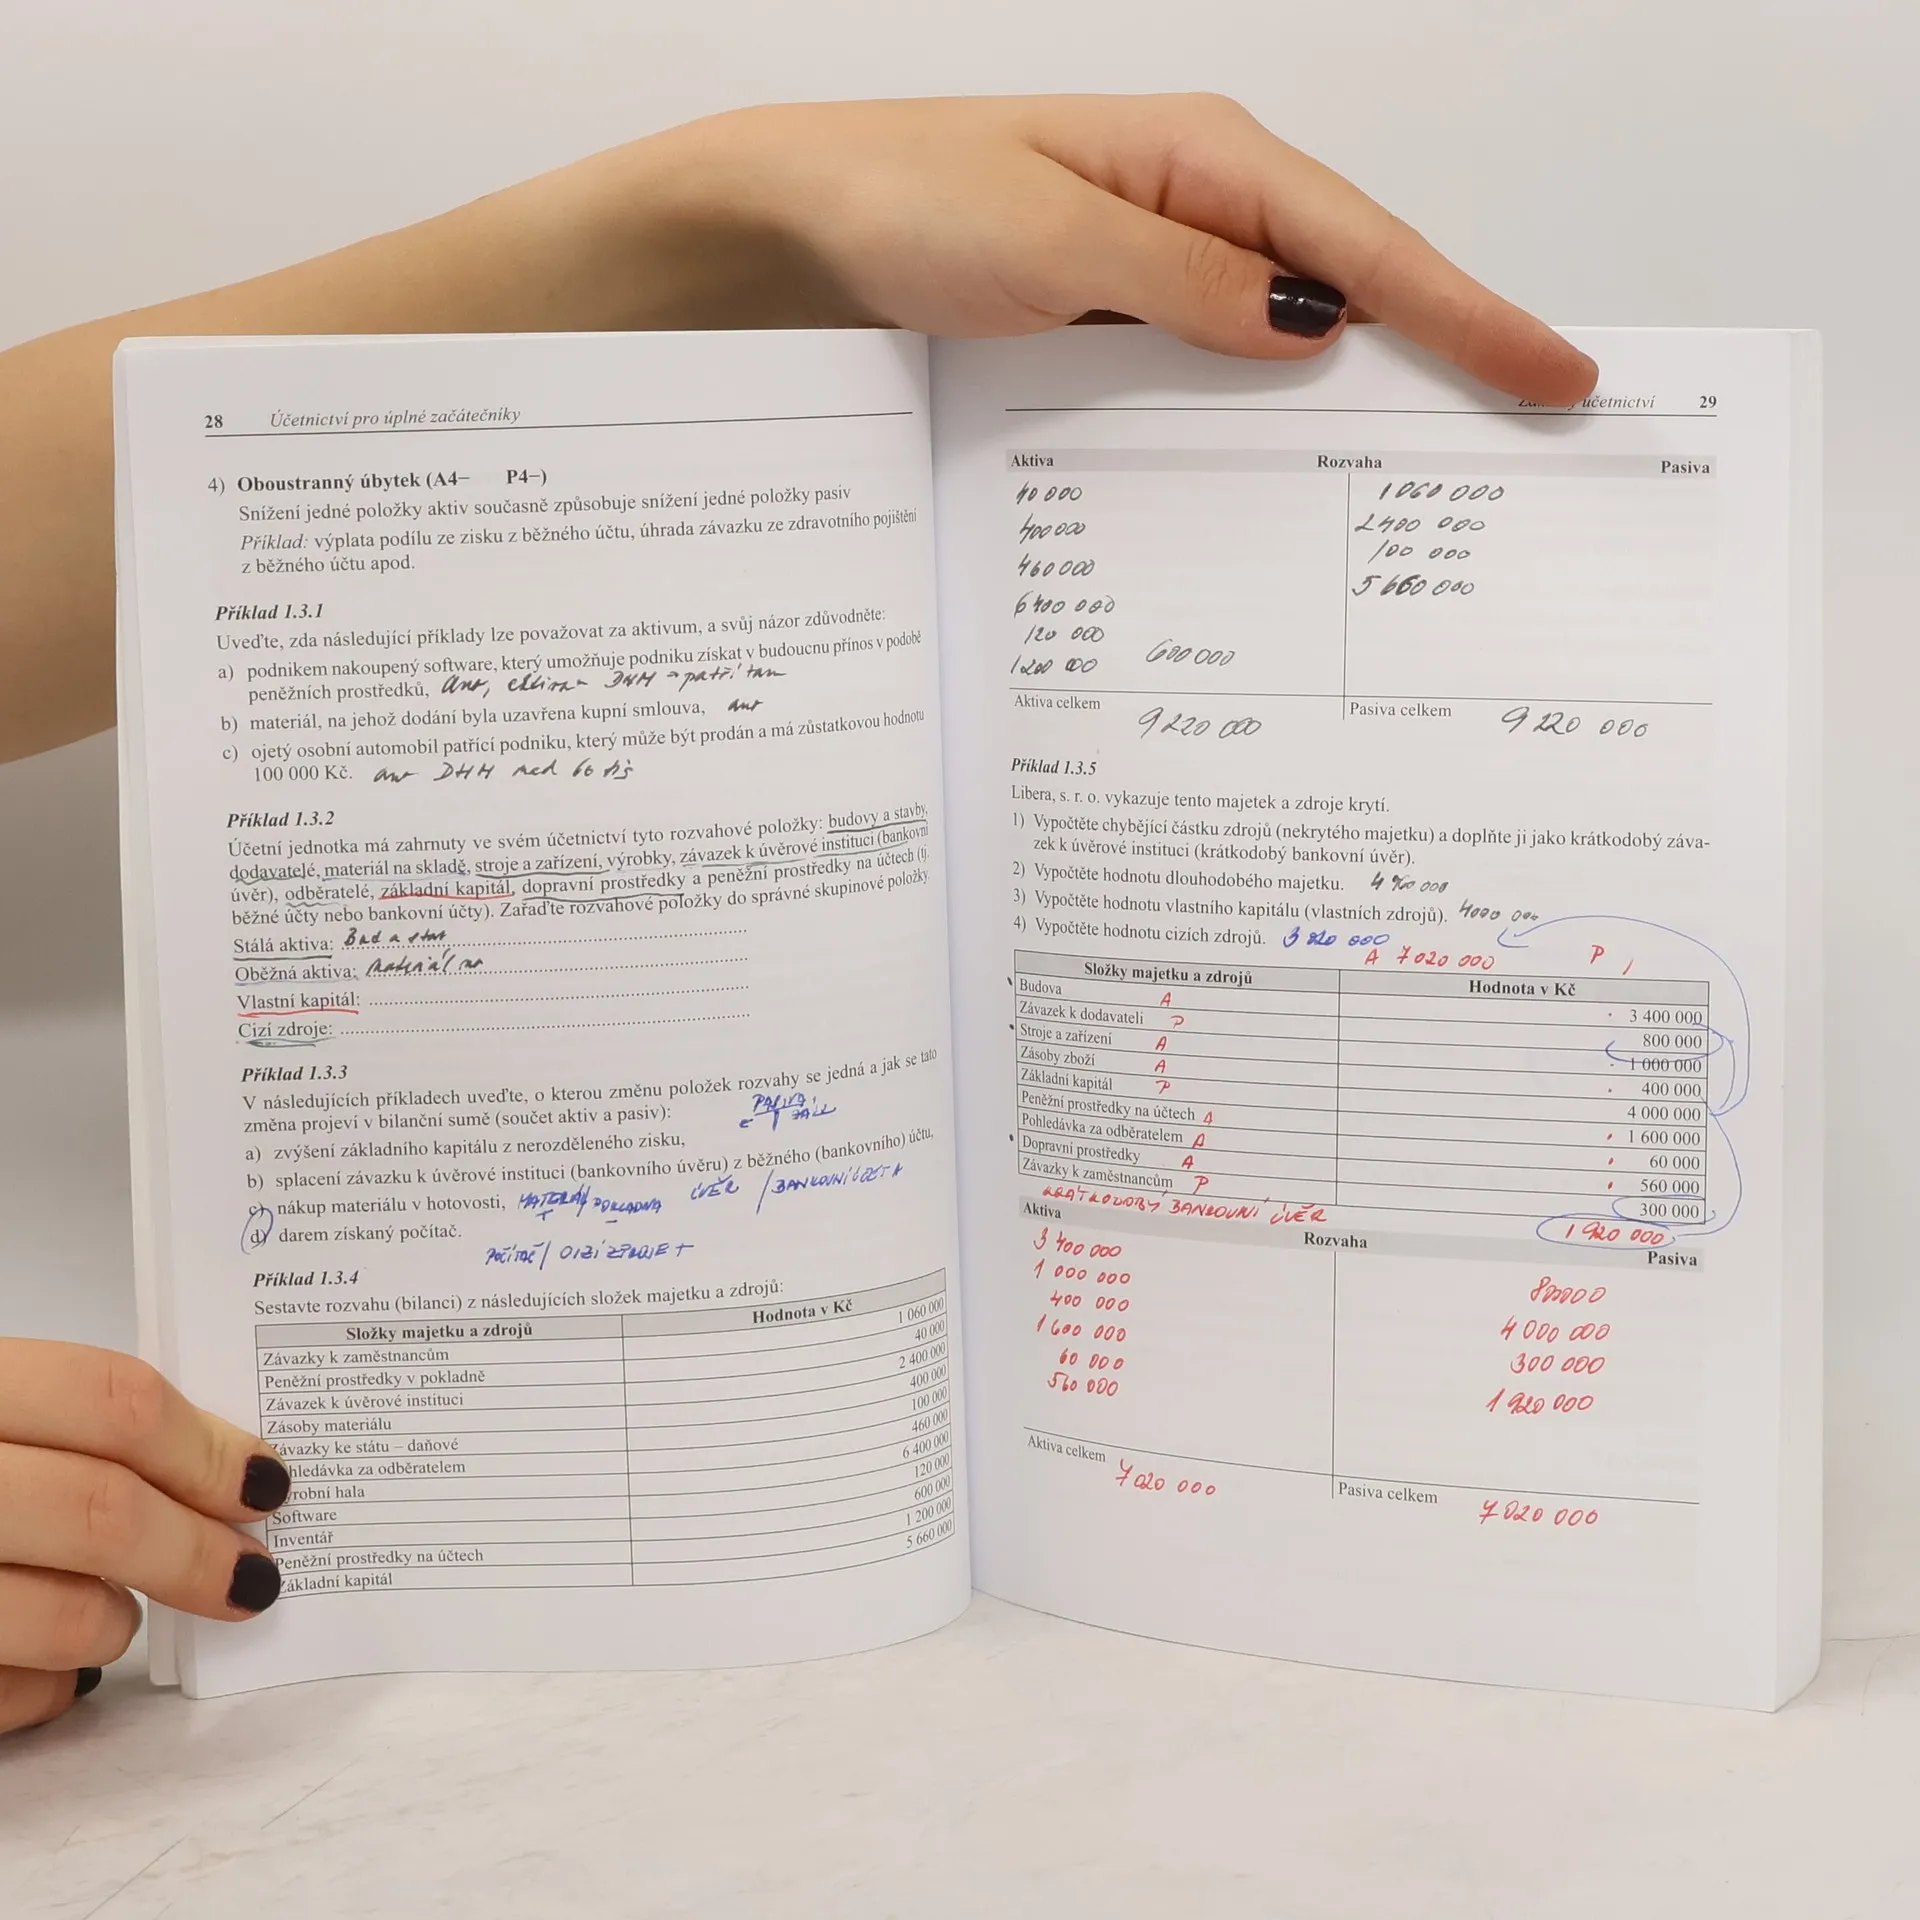 28 Účetnictví pro úplné začátečníky
4) Oboustranný úbytek (A4− P4−)
Snížení jedné položky aktiv současně způsobuje snížení jedné položky pasiv
Příklad: výplata podílu ze zisku z běžného účtu, úhrada závazku ze zdravotního pojištění
z běžného účtu apod.
Příklad 1.3.1
Uveďte, zda následující příklady lze považovat za aktivum, a svůj názor zdůvodněte:
a) podnikem nakoupený software, který umožňuje podniku získat v budoucnu přínos v podobě
peněžních prostředků, patří tam
b) materiál, na jehož dodání byla uzavřena kupní smlouva,
c) ojetý osobní automobil patřící podniku, který může být prodán a má zůstatkovou hodnotu
100 000 Kč. DHM nad 60 tis
Příklad 1.3.2
Účetní jednotka má zahrnuty ve svém účetnictví tyto rozvahové položky: budovy a stavby,
dodavatelé, materiál na skladě, stroje a zařízení, výrobky, závazek k úvěrové instituci (bankovní
úvěr), odběratelé, základní kapitál, dopravní prostředky a peněžní prostředky na účtech (tj.
běžné účty nebo bankovní účty). Zařaďte rozvahové položky do správné skupinové položky.
Stálá aktiva: Bud a stav
Oběžná aktiva: Materiál
Vlastní kapitál:
Cizí zdroje:
Příklad 1.3.3
V následujících příkladech uveďte, o kterou změnu položek rozvahy se jedná a jak se tato
změna projeví v bilanční sumě (součet aktiv a pasiv):
PASIVA
a) zvýšení základního kapitálu z nerozděleného zisku,
b) splacení závazku k úvěrové instituci (bankovního úvěru) z běžného (bankovního) účtu,
c) nákup materiálu v hotovosti, MATERIÁL / POKLADNA ÚVĚR / BANKOVNÍ ÚČET
d) darem získaný počítač.
POČÍTAČ / CIZÍ ZDROJE +
Příklad 1.3.4
Sestavte rozvahu (bilanci) z následujících složek majetku a zdrojů:
Složky majetku a zdrojů Hodnota v Kč
Závazky k zaměstnancům 1 060 000
Peněžní prostředky v pokladně 40 000
Závazek k úvěrové instituci 2 400 000
Zásoby materiálu 400 000
Závazky ke státu – daňové 100 000
hledávka za odběratelem 460 000
robní hala 6 400 000
Software 120 000
Inventář 600 000
Peněžní prostředky na účtech 1 200 000
Základní kapitál 5 660 000
účetnictví 29
Aktiva Rozvaha Pasiva
40 000 1 060 000
400 000 2 400 000
460 000 100 000
6 400 000 5 660 000
120 000
1 200 000 600 000
Aktiva celkem 9 220 000 Pasiva celkem 9 220 000
Příklad 1.3.5
Libera, s. r. o. vykazuje tento majetek a zdroje krytí.
1) Vypočtěte chybějící částku zdrojů (nekrytého majetku) a doplňte ji jako krátkodobý záva-
zek k úvěrové instituci (krátkodobý bankovní úvěr).
2) Vypočtěte hodnotu dlouhodobého majetku.
3) Vypočtěte hodnotu vlastního kapitálu (vlastních zdrojů). 4000 000
4) Vypočtěte hodnotu cizích zdrojů.
A 7 020 000 P
Složky majetku a zdrojů Hodnota v Kč
Budova A 3 400 000
Závazek k dodavateli P 800 000
Stroje a zařízení A 1 000 000
Zásoby zboží A 400 000
Základní kapitál P 4 000 000
Peněžní prostředky na účtech A 1 600 000
Pohledávka za odběratelem A 60 000
Dopravní prostředky A 560 000
Závazky k zaměstnancům P 300 000
KRÁTKODOBÝ BANKOVNÍ ÚVĚR 1 920 000
Aktiva Rozvaha Pasiva
3 400 000
1 000 000 4 000 000
400 000 300 000
1 600 000 1 920 000
60 000
560 000
Aktiva celkem 7 020 000 Pasiva celkem 7 020 000